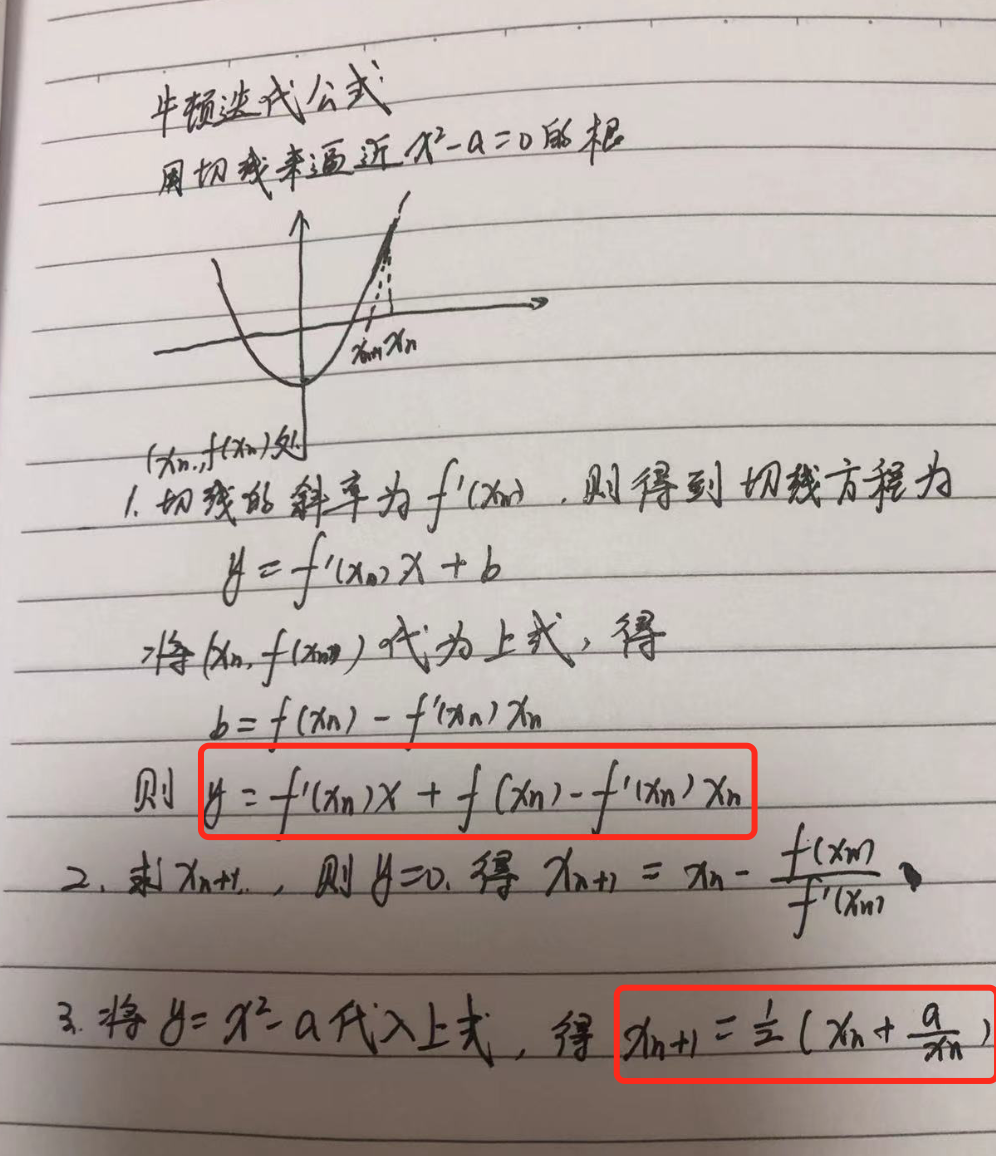 牛顿迭代公式
用切线来逼近 x²-a=0 的根
xₙ₊₁ xₙ
(xₙ, f(xₙ)处
1. 切线的斜率为 f'(xₙ), 则得到切线方程为
y = f'(xₙ)x + b
将(xₙ, f(xₙ))代为上式, 得
b = f(xₙ) - f'(xₙ)xₙ
则 y = f'(xₙ)x + f(xₙ) - f'(xₙ)xₙ
2. 求xₙ₊₁, 则 y=0. 得 xₙ₊₁ = xₙ - f(xₙ)/f'(xₙ)
3. 将 y = x²-a 代入上式, 得 xₙ₊₁ = ½(xₙ + a/xₙ)